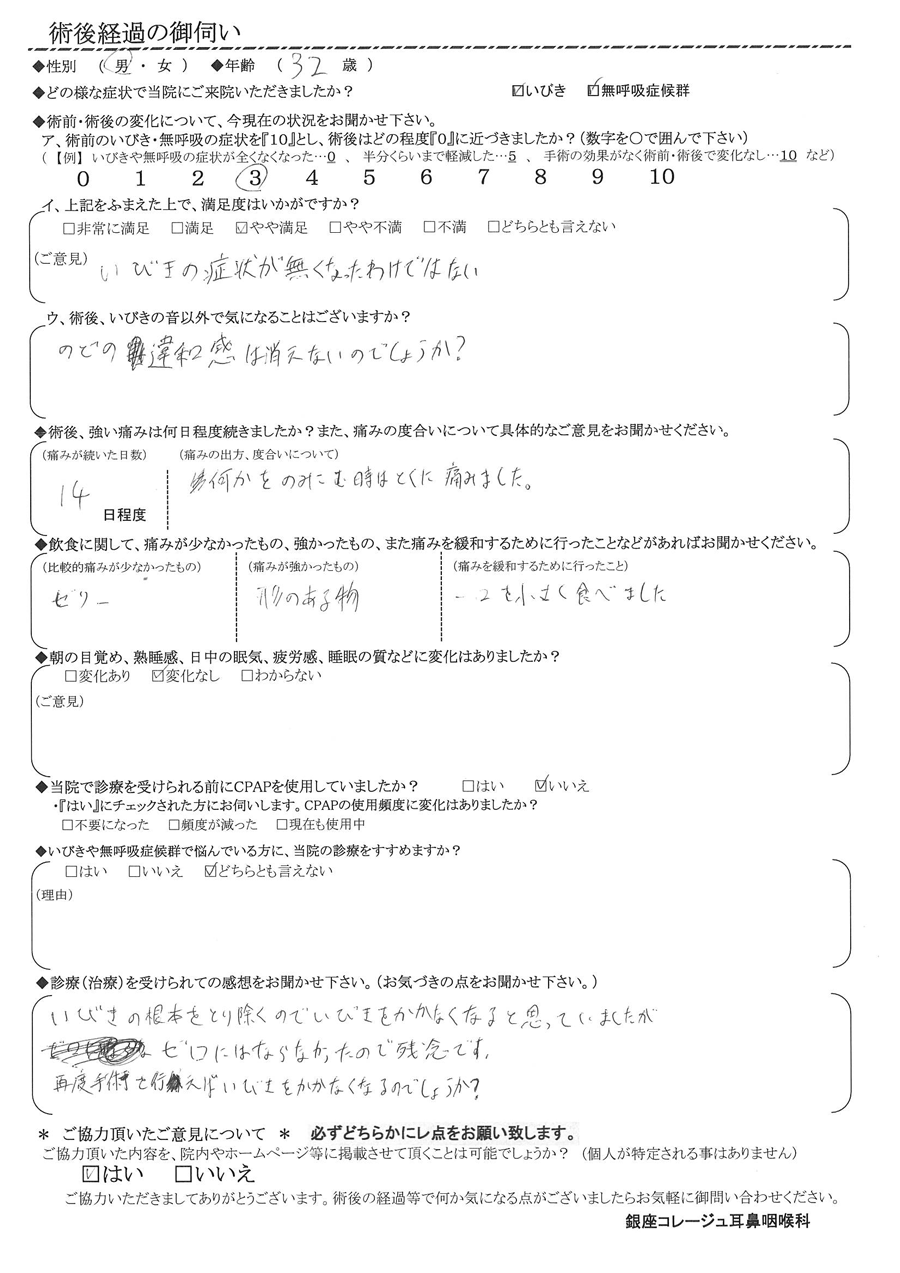 術後経過の御伺い
◆性別 （ 男 ・ 女 ） ◆年齢 （ 32 歳 ）
◆どの様な症状で当院にご来院いただきましたか？ ☑いびき ☑無呼吸症候群
◆術前・術後の変化について、今現在の状況をお聞かせ下さい。
ア、術前のいびき・無呼吸の症状を『10』とし、術後はどの程度『0』に近づきましたか？（数字を○で囲んで下さい）
（【例】いびきや無呼吸の症状が全くなくなった…0 、 半分くらいまで軽減した…5 、 手術の効果がなく術前・術後で変化なし…10 など）
0 1 2 3 4 5 6 7 8 9 10
イ、上記をふまえた上で、満足度はいかがですか？
□非常に満足 □満足 ☑やや満足 □やや不満 □不満 □どちらとも言えない
（ご意見） いびきの症状が無くなったわけではない
ウ、術後、いびきの音以外で気になることはございますか？
のどの違和感は消えないのでしょうか？
◆術後、強い痛みは何日程度続きましたか？また、痛みの度合いについて具体的なご意見をお聞かせください。
（痛みが続いた日数） （痛みの出方、度合いについて）
何かをのみこむ時はとくに痛みました。
14 日程度
◆飲食に関して、痛みが少なかったもの、強かったもの、また痛みを緩和するために行ったことなどがあればお聞かせください。
（比較的痛みが少なかったもの） （痛みが強かったもの） （痛みを緩和するために行ったこと）
ゼリー 形のある物 一口を小さく食べました
◆朝の目覚め、熟睡感、日中の眠気、疲労感、睡眠の質などに変化はありましたか？
□変化あり ☑変化なし □わからない
（ご意見）
◆当院で診療を受けられる前にCPAPを使用していましたか？ □はい ☑いいえ
・『はい』にチェックされた方にお伺いします。CPAPの使用頻度に変化はありましたか？
□不要になった □頻度が減った □現在も使用中
◆いびきや無呼吸症候群で悩んでいる方に、当院の診療をすすめますか？
□はい □いいえ ☑どちらとも言えない
（理由）
◆診療（治療）を受けられての感想をお聞かせ下さい。（お気づきの点をお聞かせ下さい。）
いびきの根本をとり除くのでいびきをかかなくなると思っていましたが
ゼロにはならなかったので残念です。
再度手術を行えばいびきをかかなくなるのでしょうか？
＊ ご協力頂いたご意見について ＊ 必ずどちらかにレ点をお願い致します。
ご協力頂いた内容を、院内やホームページ等に掲載させて頂くことは可能でしょうか？ （個人が特定される事はありません）
☑はい □いいえ
ご協力いただきましてありがとうございます。術後の経過等で何か気になる点がございましたらお気軽に御問い合わせください。
銀座コレージュ耳鼻咽喉科